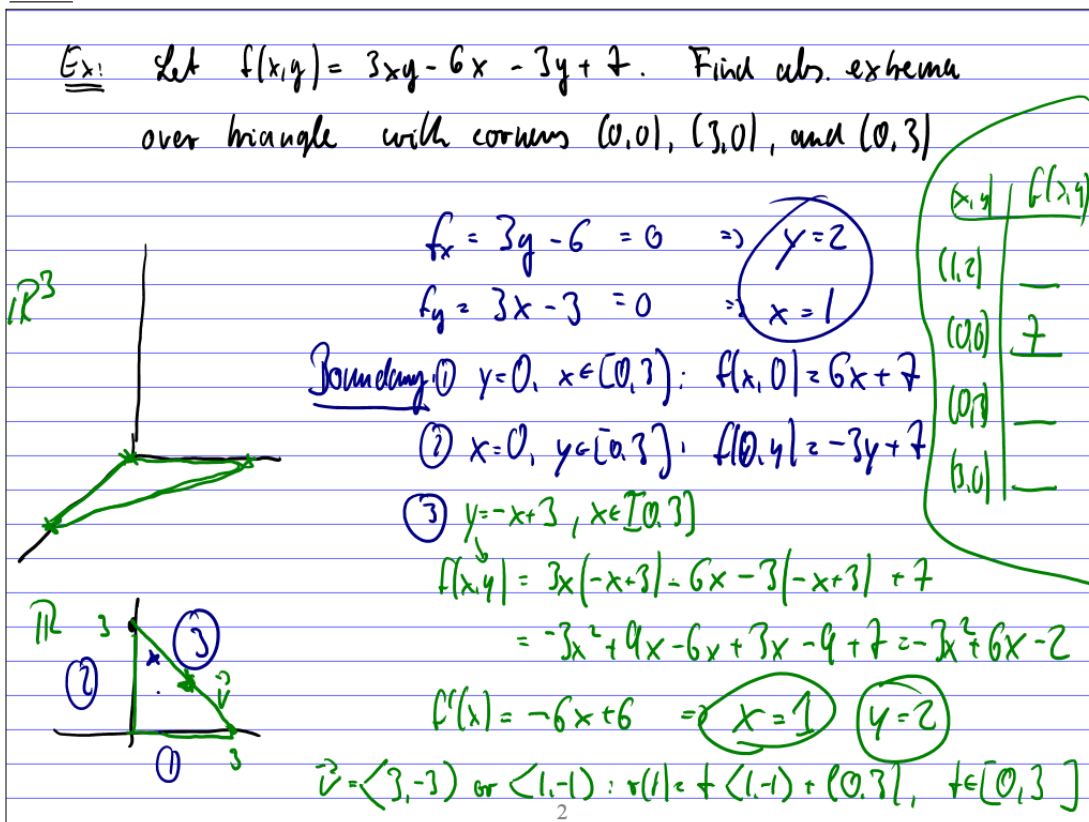 Ex: Let f(x,y) = 3xy - 6x - 3y + 7. Find abs. extrema
over triangle with corners (0,0), (3,0), and (0,3)
fx = 3y - 6 = 0 => y = 2
fy = 3x - 3 = 0 => x = 1
Boundary: ① y=0, x∈[0,3]: f(x,0) = 6x + 7
② x=0, y∈[0,3]: f(0,y) = -3y + 7
③ y=-x+3, x∈[0,3]
f(x,y) = 3x(-x+3) - 6x - 3(-x+3) + 7
= -3x² + 9x - 6x + 3x - 9 + 7 = -3x² + 6x - 2
f'(x) = -6x + 6 => x = 1 y = 2
v⃗ = <3,-3> or <1,-1> : r(t) = t <1,-1> + (0,3), t∈[0,3]
(x,y) | f(x,y)
(1,2) __
(0,0) 7
(0,3) __
(3,0) __
ℝ³
ℝ 3
③
② v⃗
① 3
2